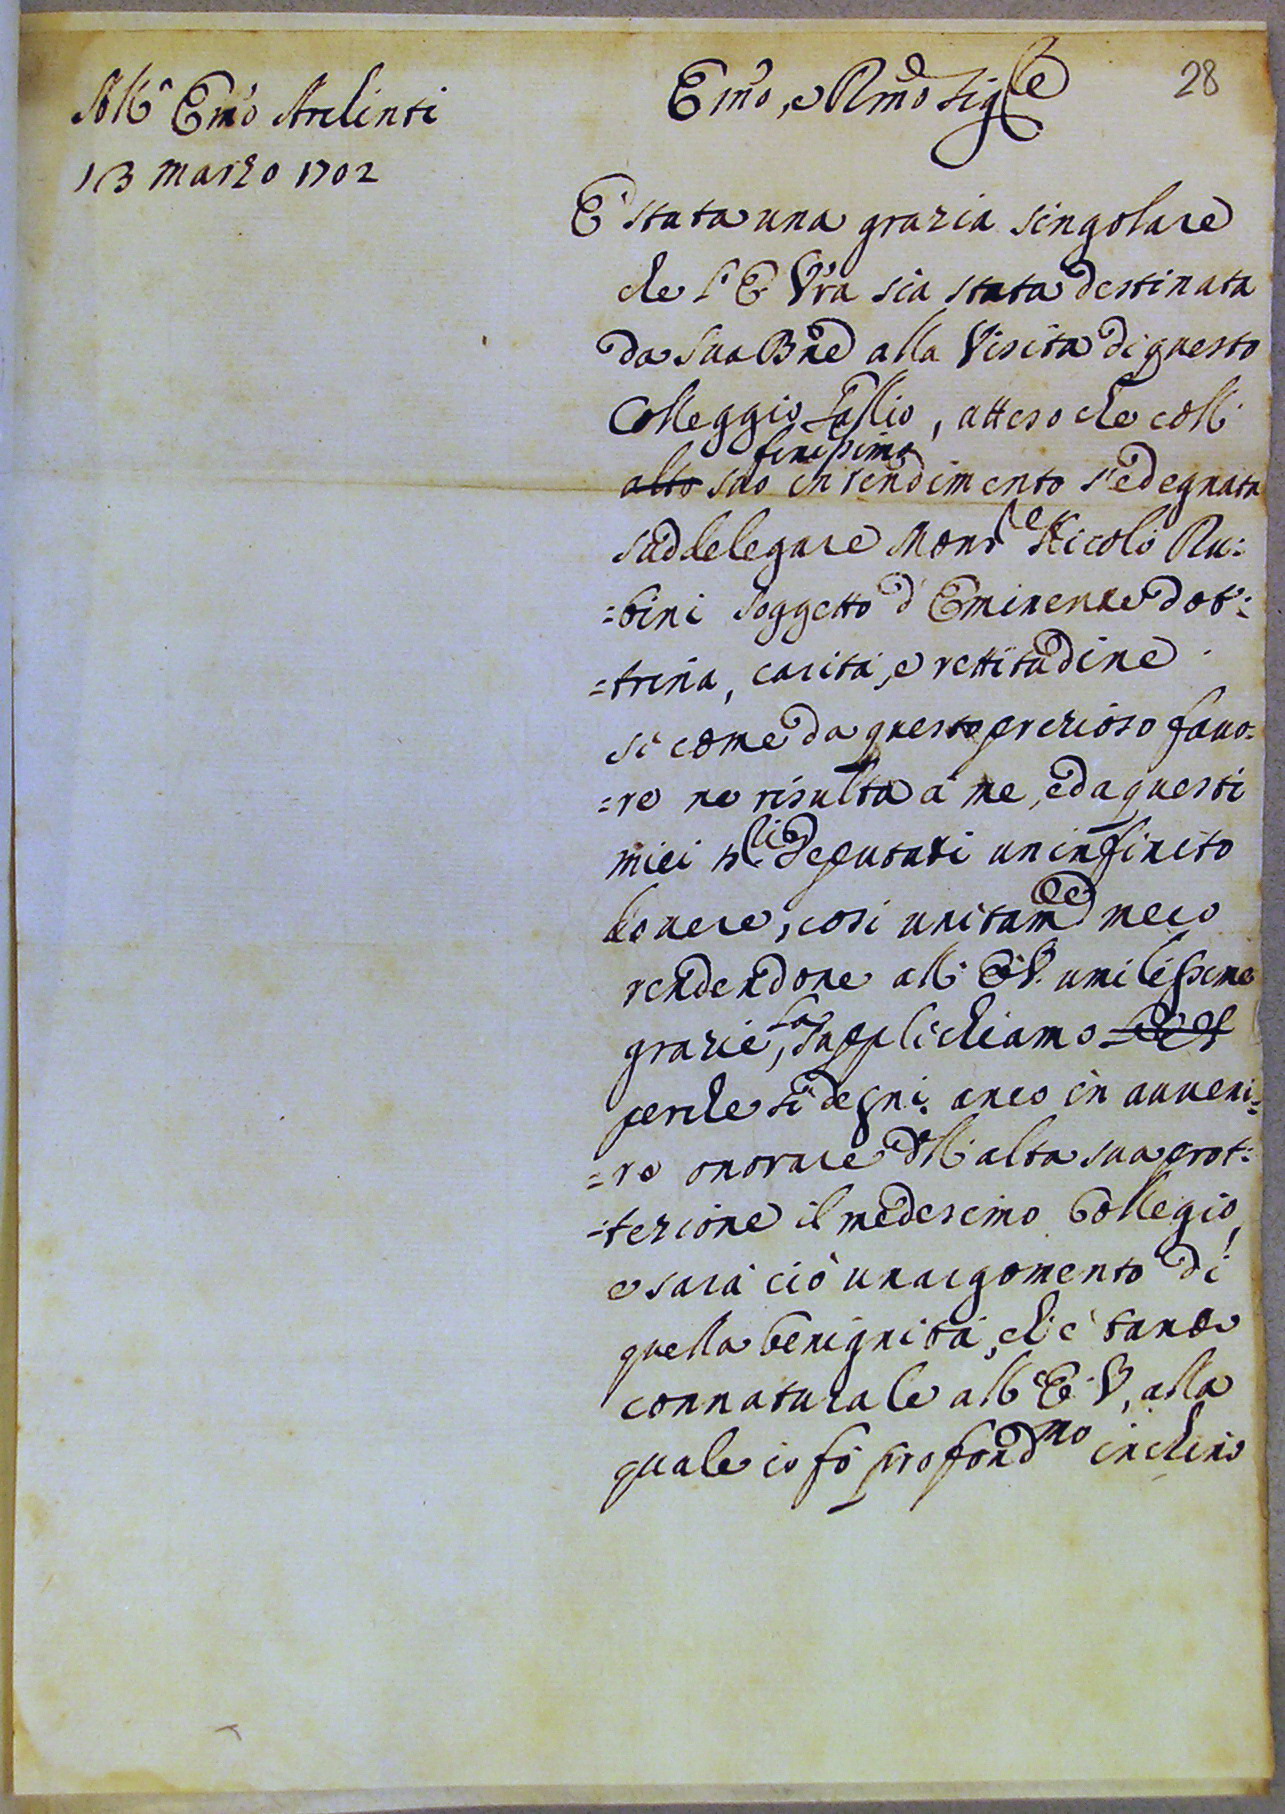 All' Emõ Archinti
13 marzo 1702
28
Emõ, e Rmõ Sig.re
E' stata una grazia singolare
che l'E Vr̃a sia stata destinata
da Sua Bn̄e alla Visita di questo
Colleggio Gallio, atteso che coll'
alto suo finissimo intendimento s'è degnata
suddelegare Monsre Nicolò Ru:
=bini soggetto d'Eminente dot:
=trina, carità, e rettitudine.
Si come da questo prezioso favo:
=re ne risulta à me, ed a questi
miei Deputati un infinito
honere, cosi unitamẽ meco
rendendone all'E.V. umilissime
grazie, la supplichiamo
perche si degni anco in avveni:
=re onorare dell'alta sua prot:
=tezione il medesimo Collegio,
e sarà ciò un argomento di
quella benignità, ch'è tanto
connaturale all'E.V, alla
quale io fò profond.mo inchino